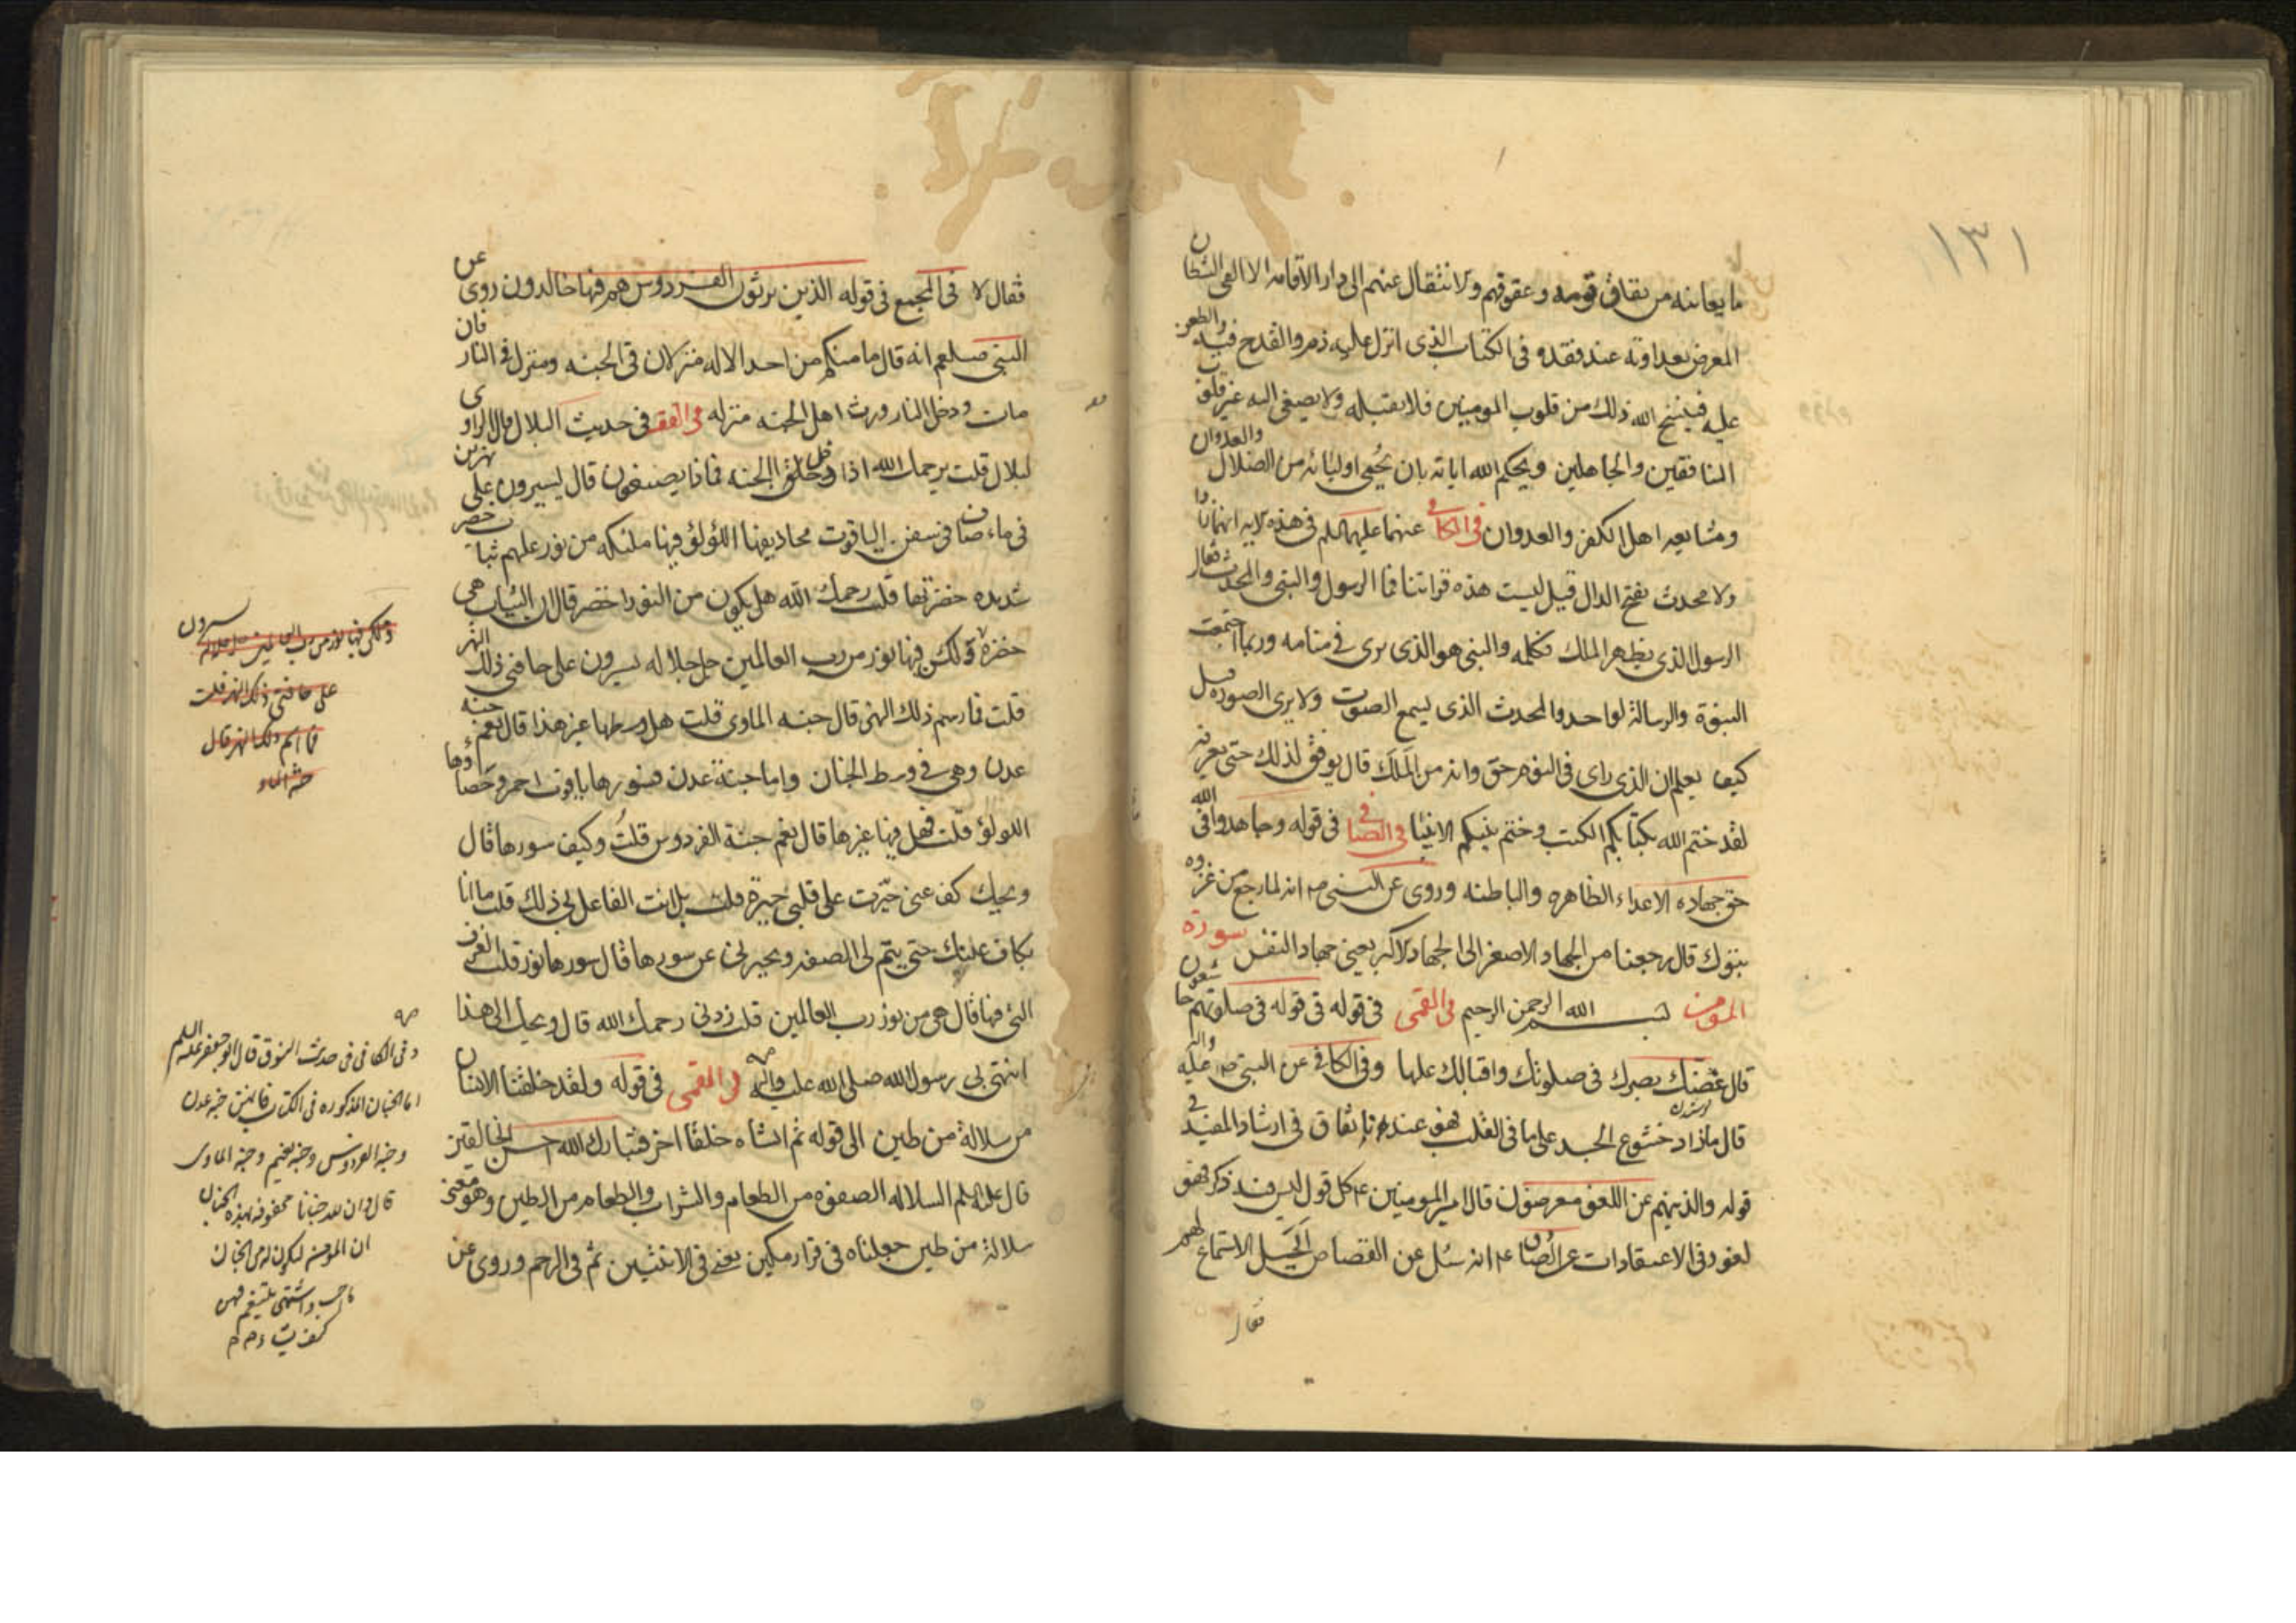 ١٣١
ما يعانيه من نفاق قومه وعقوقهم والانتقال عنهم الى دار الاقامه الا القى الشيطان
المعرض بعداوته عند فقده فى الكتاب الذى انزل عليه ذمه والقدح فيه والطعن
عليه فينسخ الله ذلك من قلوب المومنين فلا يقبله ولا يصغى اليه غير قلوب
المنافقين والجاهلين ويحكم الله اياته بان يحمى اوليائه من الضلال والعدوان
ومشايعه اهل الكفر والعدوان فى الكافى عنهما عليهما السلم فى هذه الايه انهما زادا
ولا محدث بفتح الدال قيل ليست هذه قراتنا فما الرسول والنبى والمحدث فقال
الرسول الذى يظهر له الملك فكلمه والنبى هو الذى يرى فى منامه وربما اجتمعت
النبوة والرسالة لواحد والمحدث الذى يسمع الصوت ولا يرى الصوره قيل
كيف يعلم ان الذى راى فى النوم حق وانه من الملك قال يوفق لذلك حتى يعرفه
لقد ختم الله بكتابكم الكتب وختم بنبيكم الانبيا فى الصافى فى قوله وجاهدوا فى الله
حق جهاده الاعداء الظاهره والباطنه وروى عن النبى ص انه لما رجع من غزوه
تبوك قال رجعنا من الجهاد الاصغر الى الجهاد الاكبر يعنى جهاد النفس سورة
المومنون بسم الله الرحمن الرحيم فى القمى فى قوله فى قوله فى صلوتهم خاشعون
قال غضك بصرك فى صلوتك واقبالك عليها وفى الكافى عن النبى ص عليه واله
قال ما زاد خشوع الجسد على ما فى القلب فهو عندنا نفاق فى ارشاد المفيد فى
قوله والذينهم عن اللغو معرضون قال امير المومنين ع كل قول ليس فيه ذكر فهو
لغو وفى الاعتقادات عن الصادق ع انه سئل عن القصاص ايحل الاستماع لهم
فقال
فقال لا فى المجمع فى قوله الذين يرثون الفردوس هم فيها خالدون روى عن
النبى صلعم انه قال ما منكم من احد الا له منزلان فى الجنه ومنزل فى النار فان
مات ودخل النار ورث اهل الجنه منزله فى الفقيه فى حديث البلال قال الراوى
لبلال قلت يرحمك الله اذا دخلوا الجنه فماذا يصنعون قال يسيرون على نهرين
فى ماء صاف فى سفن الياقوت مجاديفها اللؤلؤ فيها ملئكه من نور عليهم ثياب خضر
شديده خضرتها قلت رحمك الله هل يكون من النور اخضر قال ان الثياب هى
خضرة ولكن فيها نور من رب العالمين جل جلاله يسيرون على حافتى ذلك النهر
قلت فما اسم ذلك النهر قال جنه الماوى قلت هل وسطها غير هذا قال نعم جنه
عدن وهى فى وسط الجنان واما جنة عدن فسورها ياقوت احمر وحصاؤها
اللولؤ قلت فهل فيها غيرها قال نعم جنة الفردوس قلت وكيف سورها قال
ويحك كف عنى حيرت على قلبى حيرة قلت بل انت الفاعل بى ذلك قلت ما انا
بكاف عنك حتى يتم لى الصفه ويخبرنى عن سورها قال سورها نور قلت الغرف
التى فيها قال هى من نور رب العالمين قلت زدنى رحمك الله قال ويحك الى هذا
انتهى بى رسول الله صلى الله عليه واله فى القمى فى قوله ولقد خلقنا الانسان
من سلالة من طين الى قوله ثم انشاه خلقا اخر فتبارك الله احسن الخالقين
قال عليه السلم السلاله الصفوه من الطعام والشراب والطعام من الطين وهو معنى
سلالة من طين جعلناه فى قرار مكين يعنى فى الانثيين ثم فى الرحم وروى عن
ولكن فيها نور من رب العالمين جل جلاله يسيرون
على حافتى ذلك النهر قلت
فما اسم ذلك النهر قال
جنه الماو
وفى الكافى فى حديث النوق قال ابو جعفر عليه السلم
اما الجنان المذكوره فى الكتاب فانهن جنه عدن
وجنه الفردوس وجنه نعيم وجنه الماوى
قال وان لله جنانا محفوفه بهذه الجنان
ان المومن ليكون له من الجنان
ما احب واشتهى يتنعم فيهن
كيف يشاء